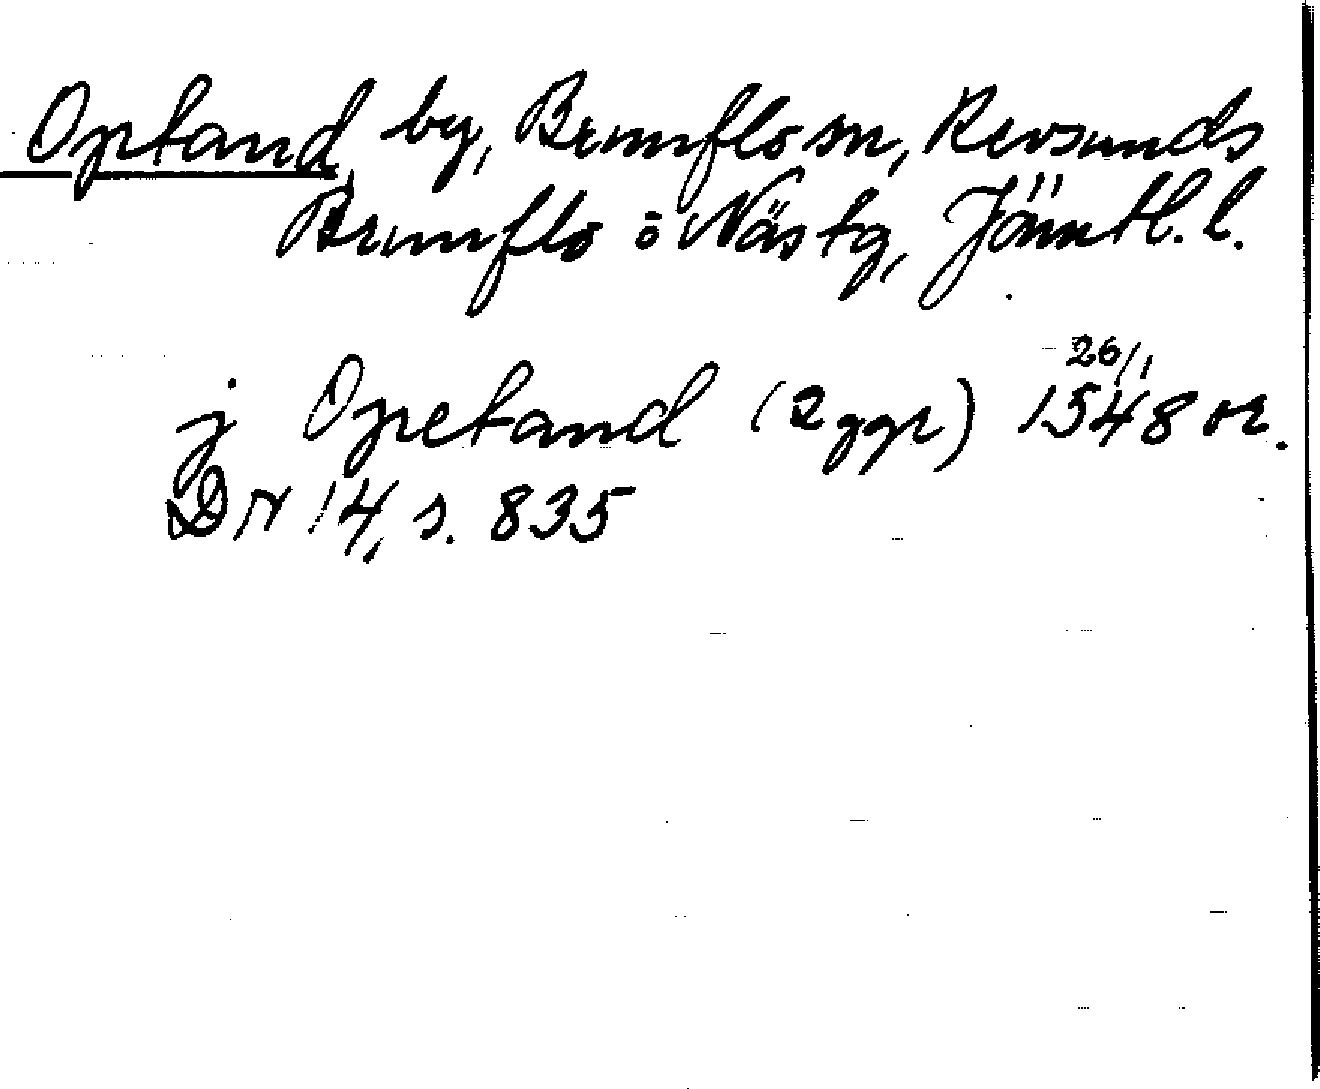 Optand, by, Brunflo sn, Revsunds
Brunflo o Näs tg, Jämtl. l.
j Opetand (2 ggr) 26/1 1548 or.
DN 14, s. 835